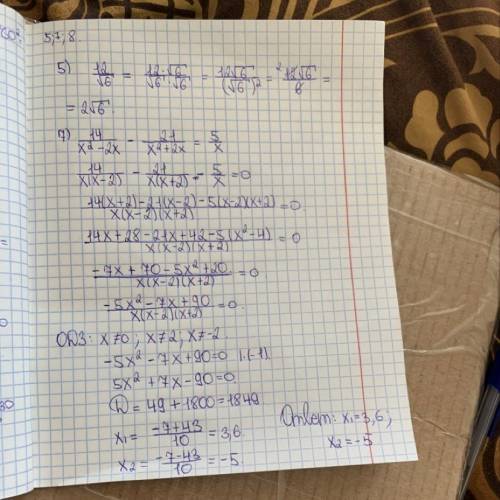 5,7,8.
5) 12/√6 = 12·√6/√6·√6 = 12√6/(√6)² = ²12√6/6 =
= 2√6.
7) 14/x²-2x - 21/x²+2x = 5/x
14/x(x-2) - 21/x(x+2) - 5/x = 0
14(x+2)-21(x-2)-5(x-2)(x+2)/x(x-2)(x+2) = 0
14x+28-21x+42-5(x²-4)/x(x-2)(x+2) = 0
-7x+70-5x²+20/x(x-2)(x+2) = 0
-5x²-7x+90/x(x-2)(x+2) = 0.
ОДЗ: x≠0; x≠2; x≠-2.
-5x²-7x+90=0 |·(-1)
5x²+7x-90=0.
D = 49+1800=1849
x₁ = -7+43/10 = 3,6.
x₂ = -7-43/10 = -5.
Ответ: x₁=3,6;
x₂=-5